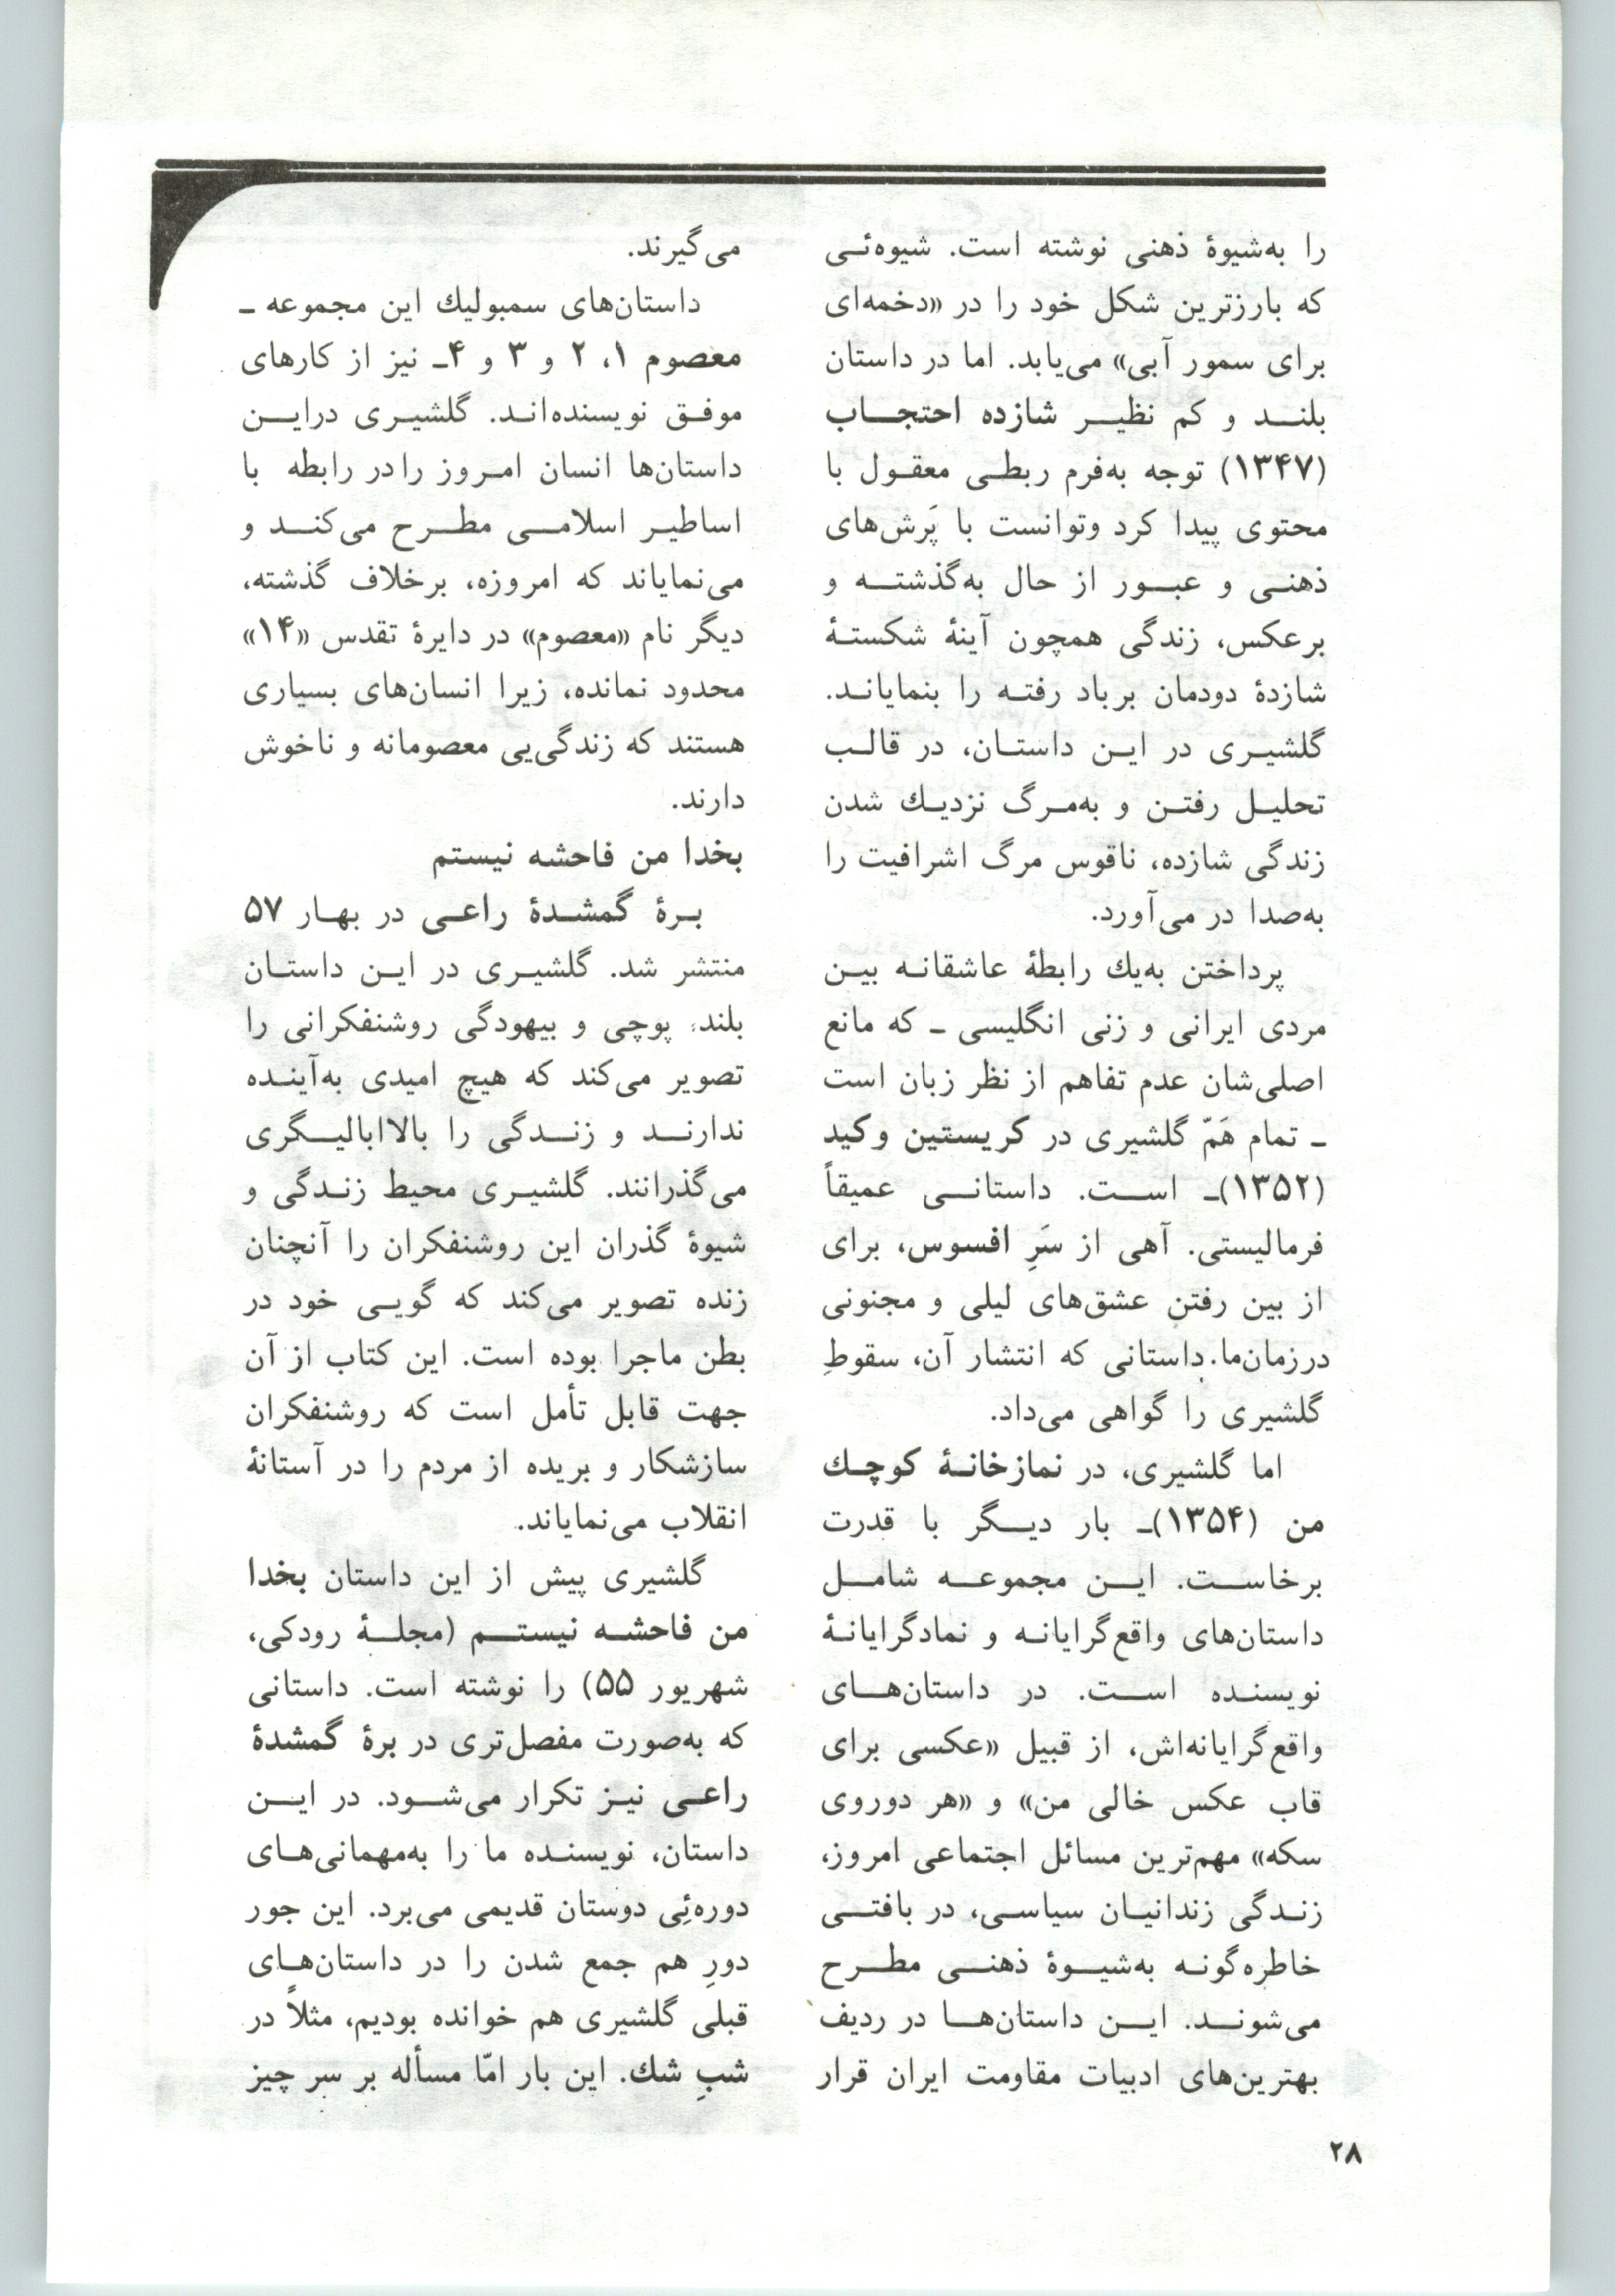 را به‌شیوهٔ ذهنی نوشته است. شیوه‌ئی
که بارزترین شکل خود را در «دخمه‌ای
برای سمور آبی» می‌یابد. اما در داستان
بلند و کم نظیر شازده احتجاب
(۱۳۴۷) توجه به‌فرم ربطی معقول با
محتوی پیدا کرد وتوانست با پَرش‌های
ذهنی و عبور از حال به‌گذشته و
برعکس، زندگی همچون آینهٔ شکستهٔ
شازدهٔ دودمان برباد رفته را بنمایاند.
گلشیری در این داستان، در قالب
تحلیل رفتن و به‌مرگ نزدیك شدن
زندگی شازده، ناقوس مرگ اشرافیت را
به‌صدا در می‌آورد.
پرداختن به‌یك رابطهٔ عاشقانه بین
مردی ایرانی و زنی انگلیسی ـ که مانع
اصلی‌شان عدم تفاهم از نظر زبان است
ـ تمام هَمّ گلشیری در کریستین وکید
(۱۳۵۲)ـ است. داستانی عمیقاً
فرمالیستی. آهی از سَرِ افسوس، برای
از بین رفتنِ عشق‌های لیلی و مجنونی
درزمان‌ما. داستانی که انتشار آن، سقوطِ
گلشیری را گواهی می‌داد.
اما گلشیری، در نمازخانهٔ کوچك
من (۱۳۵۴)ـ بار دیگر با قدرت
برخاست. این مجموعه شامل
داستان‌های واقع‌گرایانه و نمادگرایانهٔ
نویسنده است. در داستان‌های
واقع‌گرایانه‌اش، از قبیل «عکسی برای
قاب عکس خالی من» و «هر دوروی
سکه» مهم‌ترین مسائل اجتماعی امروز،
زندگی زندانیان سیاسی، در بافتی
خاطره‌گونه به‌شیوهٔ ذهنی مطرح
می‌شوند. این داستان‌ها در ردیف
بهترین‌های ادبیات مقاومت ایران قرار
می‌گیرند.
داستان‌های سمبولیك این مجموعه ـ
معصوم ۱، ۲ و ۳ و ۴ـ نیز از کارهای
موفق نویسنده‌اند. گلشیری دراین
داستان‌ها انسان امروز را در رابطه با
اساطیر اسلامی مطرح می‌کند و
می‌نمایاند که امروزه، برخلاف گذشته،
دیگر نام «معصوم» در دایرهٔ تقدس «۱۴»
محدود نمانده، زیرا انسان‌های بسیاری
هستند که زندگی‌یی معصومانه و ناخوش
دارند.
بخدا من فاحشه نیستم
برهٔ گمشدهٔ راعی در بهار ۵۷
منتشر شد. گلشیری در این داستان
بلند، پوچی و بیهودگی روشنفکرانی را
تصویر می‌کند که هیچ امیدی به‌آینده
ندارند و زندگی را بالاابالیگری
می‌گذرانند. گلشیری محیط زندگی و
شیوهٔ گذران این روشنفکران را آنچنان
زنده تصویر می‌کند که گویی خود در
بطن ماجرا بوده است. این کتاب از آن
جهت قابل تأمل است که روشنفکران
سازشکار و بریده از مردم را در آستانهٔ
انقلاب می‌نمایاند.
گلشیری پیش از این داستان بخدا
من فاحشه نیستم (مجلهٔ رودکی،
شهریور ۵۵) را نوشته است. داستانی
که به‌صورت مفصل‌تری در برهٔ گمشدهٔ
راعی نیز تکرار می‌شود. در این
داستان، نویسنده ما را به‌مهمانی‌های
دوره‌ئِی دوستان قدیمی می‌برد. این جور
دورِ هم جمع شدن را در داستان‌های
قبلی گلشیری هم خوانده بودیم، مثلاً در
شبِ شك. این بار امّا مسأله بر سر چیز
۲۸